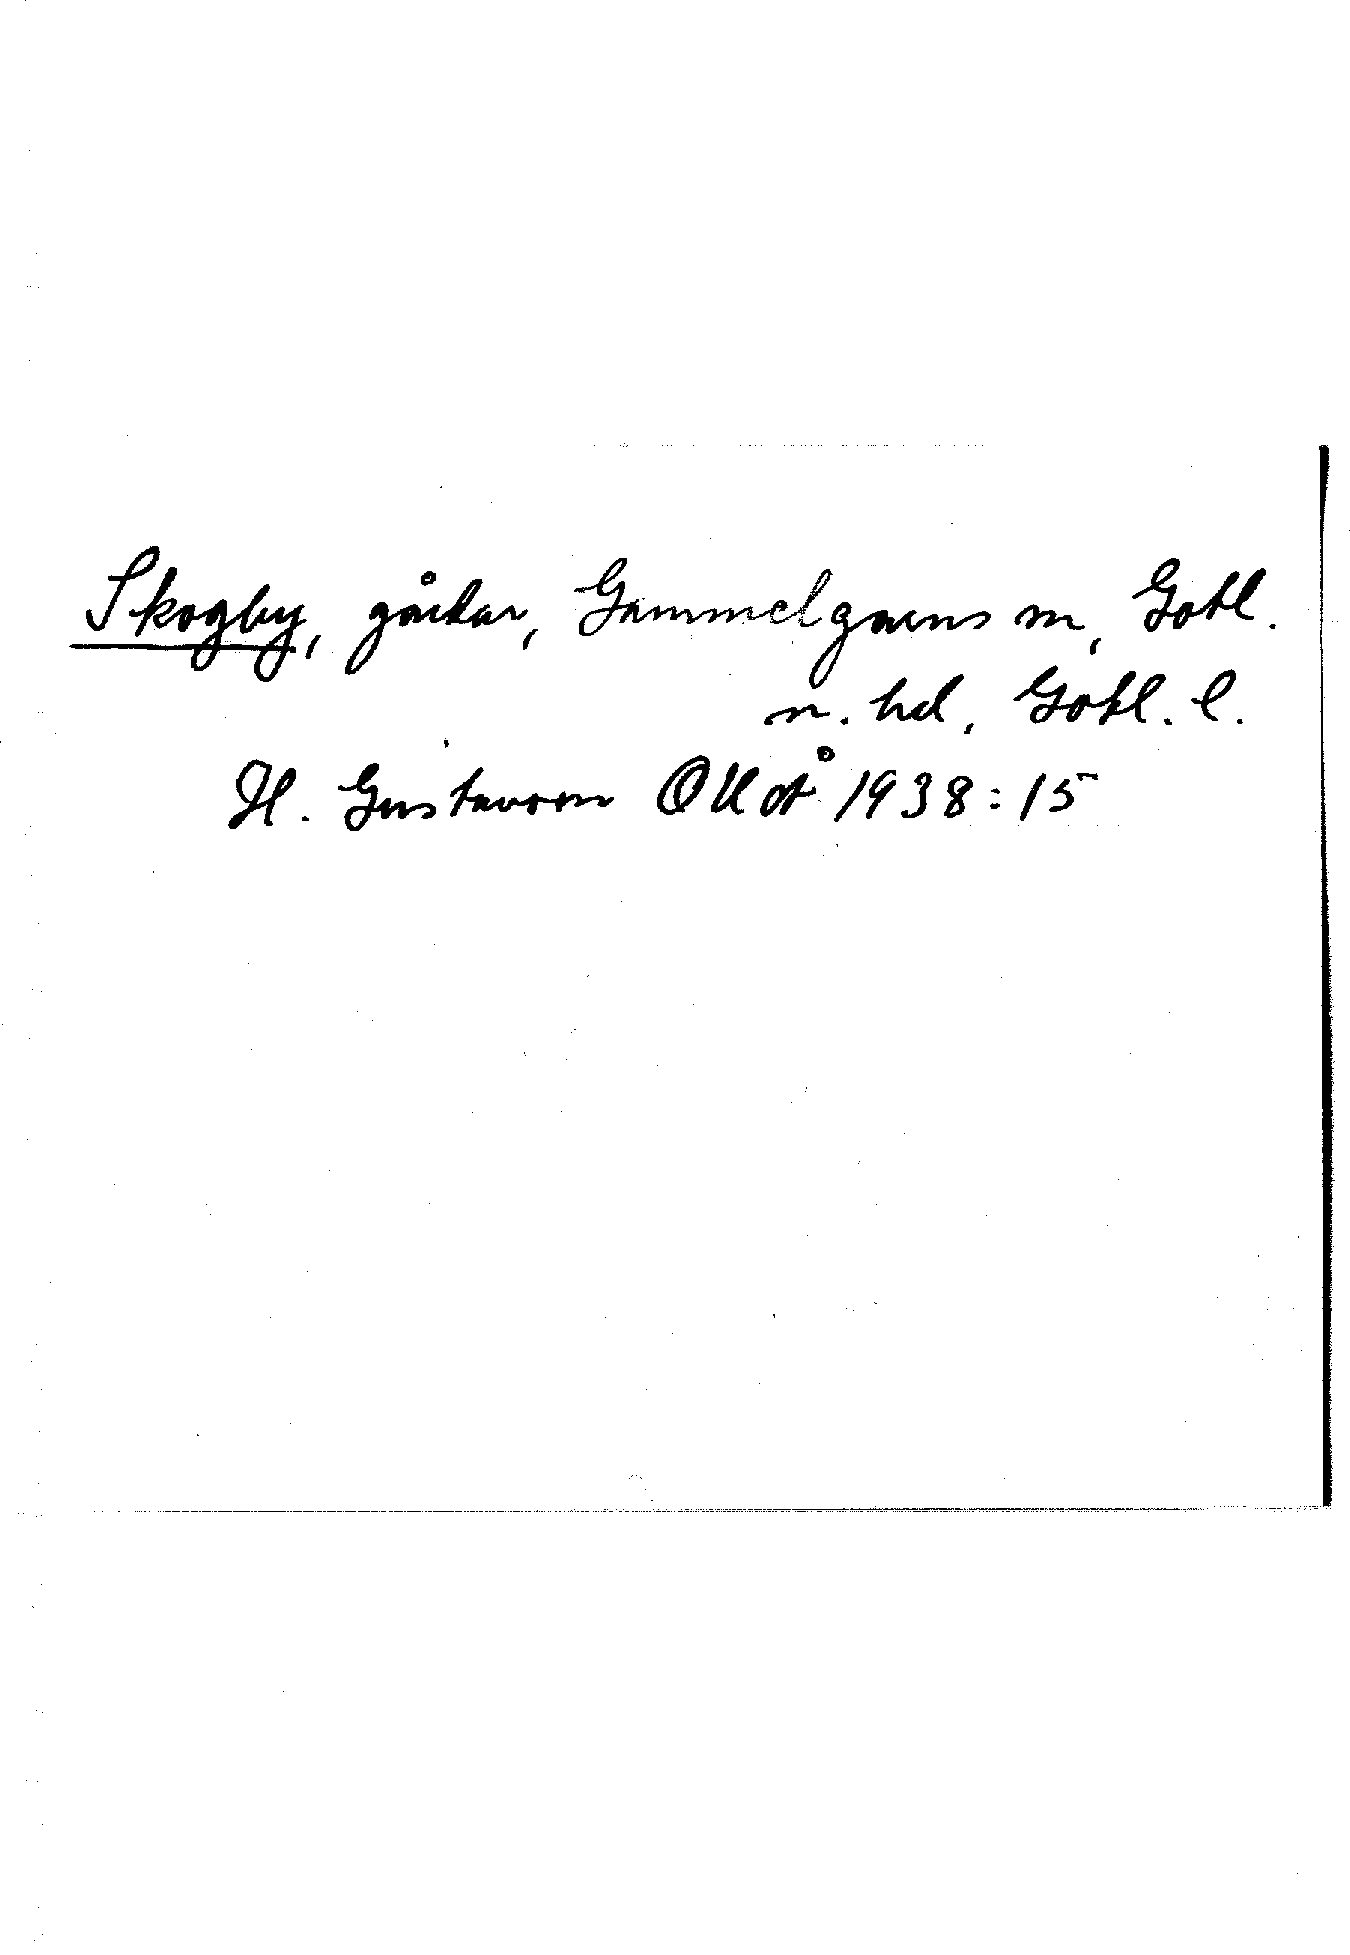 Skogby, gårdar, Gammelgarns sn, Gotl.
n. hd, Gotl. l.
H. Gustavson OUOÅ 1938:15